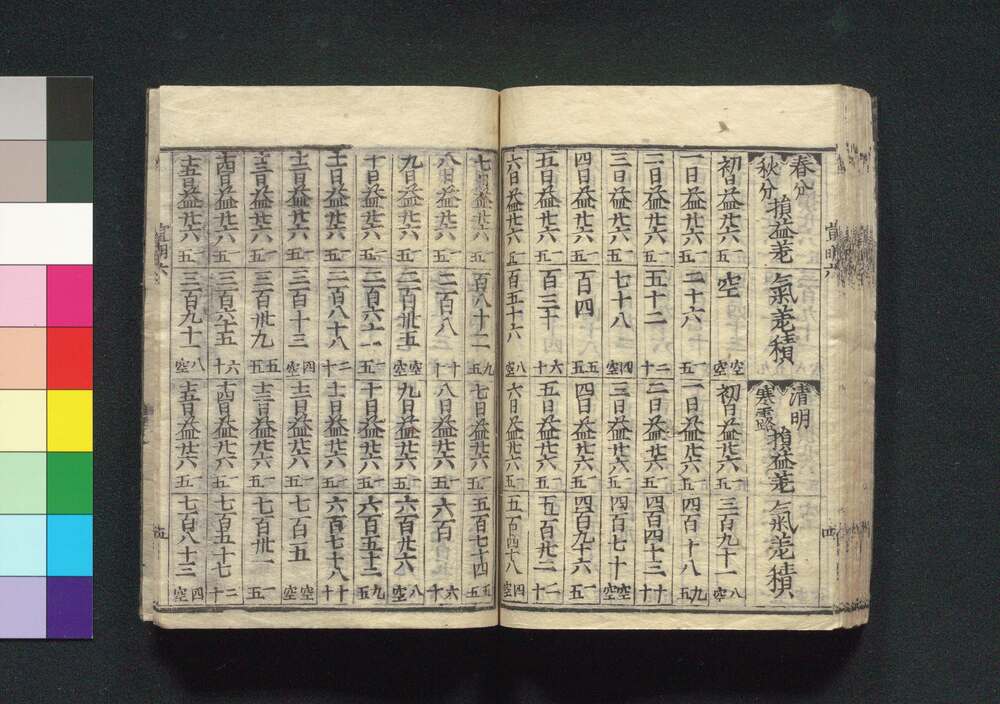 春分 秋分 損益差 氣差積 清明 寒露 損益差 氣差積
初日益廿六 一五 空 空空 初日益廿六 一五 三百九十一 八空
一日益廿六 一五 二十六 一五 一日益廿六 一五 四百一十八 九五
二日益廿六 一五 五十二 二十 二日益廿六 一五 四百四十三 十十
三日益廿六 一五 七十八 四空 三日益廿六 一五 四百七十 空空
四日益廿六 一五 百四 五五 四日益廿六 一五 四百九十六 一五
五日益廿六 一五 百三十 六十 五日益廿六 一五 五百廿二 二十
六日益廿六 一五 百五十六 八空 六日益廿六 一五 五百四十八 四空
宣明六
四
七日益廿六 一五 百八十二 九五 七日益廿六 一五 五百七十四 五五
八日益廿六 一五 二百八 十十 八日益廿六 一五 六百 六十
九日益廿六 一五 二百卅五 空空 九日益廿六 一五 六百廿六 八空
十日益廿六 一五 二百六十一 一五 十日益廿六 一五 六百五十二 九五
十一日益廿六 一五 二百八十八 二十 十一日益廿六 一五 六百七十八 十十
十二日益廿六 一五 三百十三 四空 十二日益廿六 一五 七百五 空空
十三日益廿六 一五 三百卅九 五五 十三日益廿六 一五 七百卅一 一五
十四日益廿六 一五 三百六十五 六十 十四日益廿六 一五 七百五十七 二十
十五日益廿六 一五 三百九十一 八空 十五日益廿六 一五 七百八十三 四空
宣明六